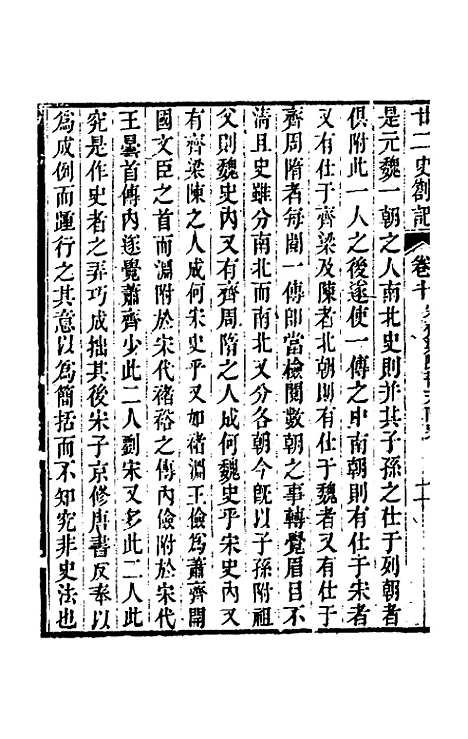 廿二史劄記
卷十
是元魏一朝之人南北史則并其子孫之仕于列朝者
俱附此一人之後遂使一傳之中南朝則有仕于宋者
又有仕于齊梁及陳者北朝則有仕于魏者又有仕于
齊周隋者每閱一傳即當檢閱數朝之事轉覺眉目不
淸且史雖分南北而南北又分各朝今旣以子孫附祖
父則魏史內又有齊周隋之人成何魏史乎宋史內又
有齊梁陳之人成何宋史乎又如褚淵王儉爲蕭齊開
國文臣之首而淵附於宋代褚裕之傳內儉附於宋代
王曇首傳內遂覺蕭齊少此二人劉宋又多此二人此
究是作史者之弄巧成拙其後宋子京修唐書反奉以
爲成例而踵行之其意以爲簡括而不知究非史法也